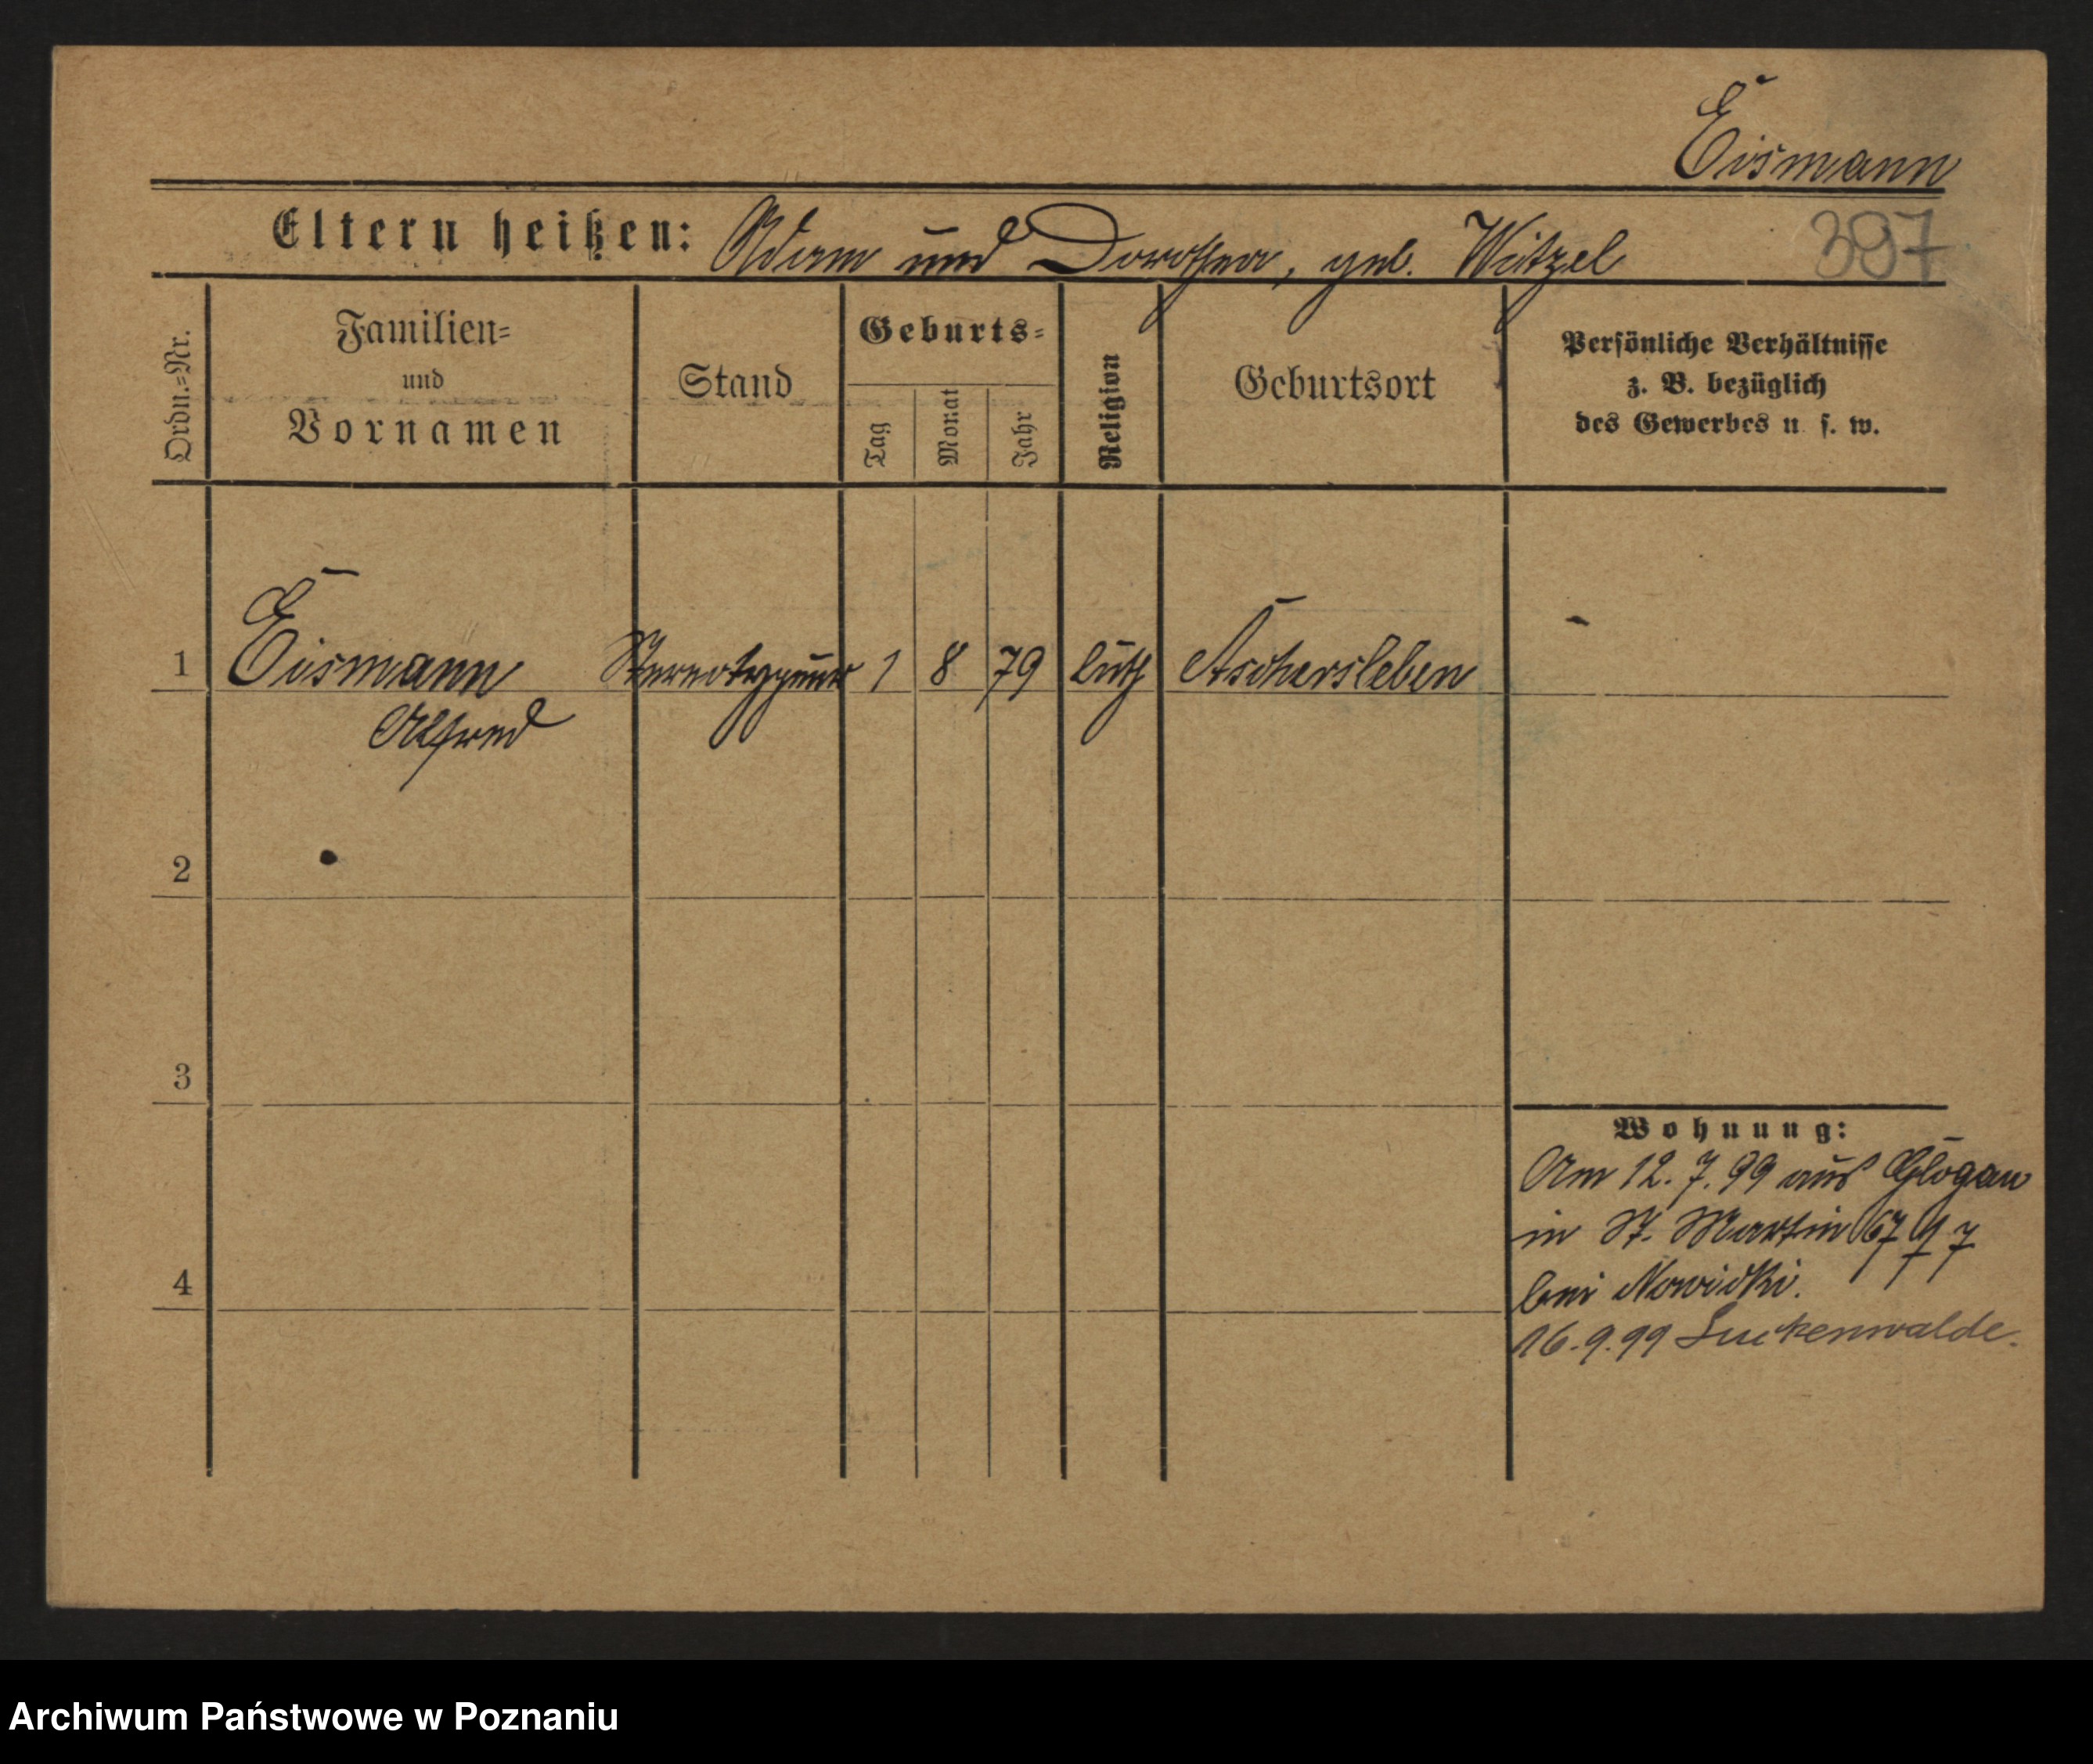 Eismann
Eltern heißen: Adam und Dorothea, geb. Witzel
397
Ordn.=Nr.
Familien=
und
Vornamen
Stand
Geburts=
Tag
Monat
Jahr
Religion
Geburtsort
Persönliche Verhältnisse
z. B. bezüglich
des Gewerbes u. s. w.
1 Eismann Stereotypeur 1 8 79 luth Aschersleben
Alfred
2
3
4
Wohnung:
Am 12. 7. 99 aus Glogau
in St. Martin 67
bei Nowicki.
16.9.99 Luckenwalde.
Archiwum Państwowe w Poznaniu